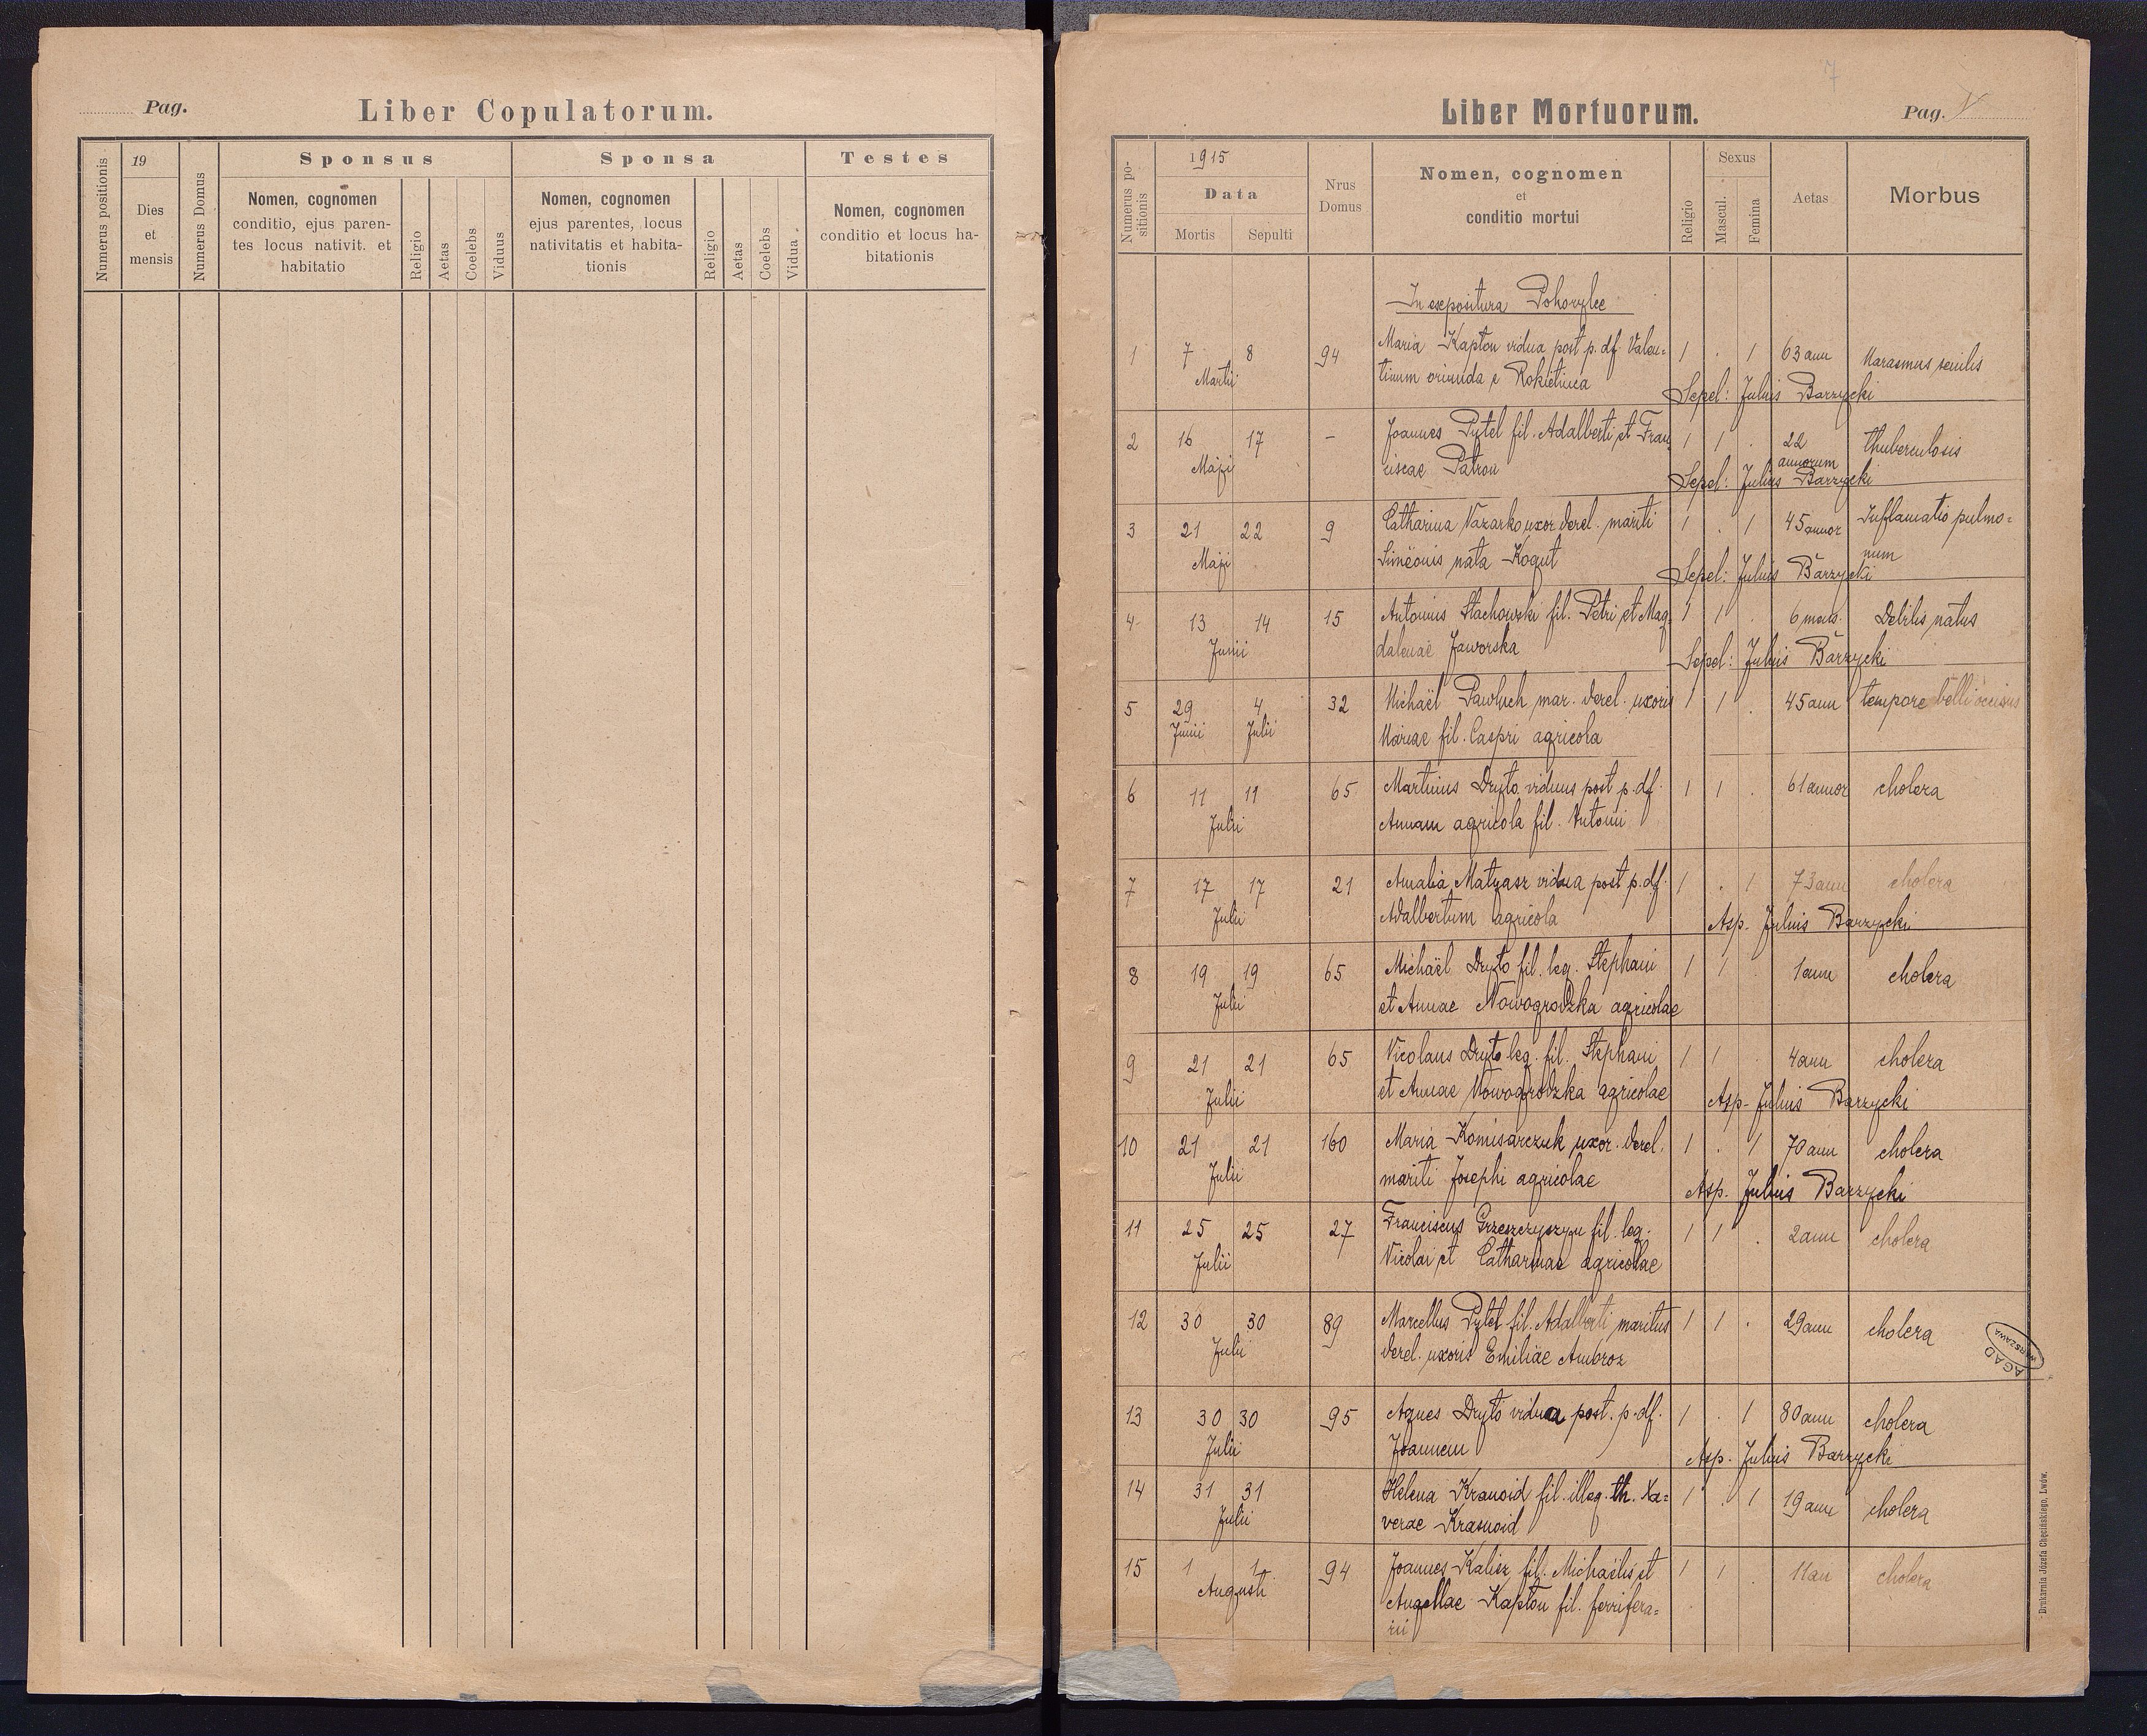 Pag.
Liber Copulatorum.
Numerus positionis
19
Dies
et
mensis
Numerus Domus
Sponsus
Nomen, cognomen
conditio, ejus paren-
tes locus nativit. et
habitatio
Religio
Aetas
Coelebs
Viduus
Sponsa
Nomen, cognomen
ejus parentes, locus
nativitatis et habita-
tionis
Religio
Aetas
Coelebs
Vidua
Testes
Nomen, cognomen
conditio et locus ha-
bitationis
7
Liber Mortuorum.
Pag. V
Numerus po-
sitionis
1915
Data
Mortis Sepulti
Nrus
Domus
Nomen, cognomen
et
conditio mortui
Religio
Sexus
Mascul.
Femina
Aetas
Morbus
In expositura Pohorylce
1 7 8 94 Maria Kapton vidua post p. df. Valen= 1 . 1 63 ann Marasmus senilis
Martii tinum oriunda e Rokietnica
Sepel: Julius Barzycki
2 16 17 - Joannes Pytel fil. Adalberti et Fran 1 1 . 22 thuberculosis
Maji ciscae Patron annorum
Sepel: Julius Barzycki
3 21 22 9 Catharina Nazarko uxor derel. mariti 1 . 1 45 annor Inflamatio pulmo=
Maji Simeonis nata Kogut num
Sepel: Julius Barzycki
4 13 14 15 Antonius Stachowski fil. Petri et Mag 1 1 . 6 mens. Debilis natus
Junii dalenae Jaworska
Sepel: Julius Barzycki
5 29 4 32 Michaël Pawluch mar. derel. uxoris 1 1 . 45 ann tempore belli occisus
Junii Julii Mariae fil. Caspri agricola
6 11 11 65 Martinus Dryto viduus post p. df. 1 1 . 61 annor cholera
Julii Annam agricola fil. Antonii
7 17 17 21 Amalia Matyasz vidua post p. df. 1 . 1 73 ann cholera
Julii Adalbertum agricola
Asp. Julius Barzycki
8 19 19 65 Michaël Dryto fil. leg. Stephani 1 1 . 1 ann cholera
Julii et Annae Nowogrodzka agricolae
9 21 21 65 Nicolaus Dryto leg. fil. Stephani 1 1 . 4 ann cholera
Julii et Annae Nowogrodzka agricolae
Asp. Julius Barzycki
10 21 21 160 Maria Komisarczuk uxor. derel. 1 . 1 70 ann cholera
Julii mariti Josephi agricolae
Asp. Julius Barzycki
11 25 25 27 Franciscus Grzeszczyszyn fil. leg. 1 1 . 2 ann cholera
Julii Nicolai et Catharinae agricolae
12 30 30 89 Marcellus Pytel fil. Adalberti maritus 1 1 . 29 ann cholera
Julii derel. uxoris Emiliae Ambroz
AGAD
WARSZAWA
13 30 30 95 Agnes Dryto vidua post. p. df. 1 . 1 80 ann cholera
Julii Joannem
Asp. Julius Barzycki
14 31 31 Helena Kranoid fil. illeg. th. Xa= 1 . 1 19 ann cholera
Julii verae Krasnoid
15 1 1 94 Joannes Kalisz fil. Michaëlis et 1 1 . 11 an cholera
Augusti Angellae Kapton fil. ferrifera=
rii
Drukarnia Józefa Chęcińskiego, Lwów.